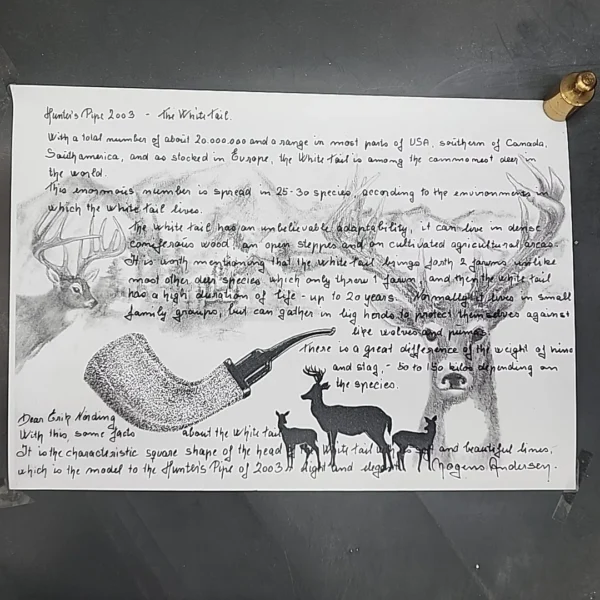 Hunter's Pipe 2003 - The White Tail.
With a total number of about 20.000.000 and a range in most parts of USA, southern of Canada,
Southamerica, and as stocked in Europe, the White Tail is among the commonest deer in
the world.
This enormous number is spread in 25-30 species, according to the environments in
which the white tail lives.
The white tail has an unbelievable adaptability, it can live in dense
coniferous wood, an open steppes and on cultivated agricultural areas.
It is worth mentioning that the white tail brings forth 2 fawns unlike
most other deer species which only throw 1 fawn, and then the white tail
has a high duration of life - up to 20 years. Normally it lives in small
family groups, but can gather in big herds to protect themselves against
like wolves and pumas.
There is a great difference of the weight of hind
and stag, - 50 to 150 kilos depending on
the species.
Dear Erik Nording
With this, some facts about the white tail
It is the characteristic square shape of the head of the White tail and beautiful lines,
which is the model to the Hunter's Pipe of 2003 light and elegant Mogens Andersen.